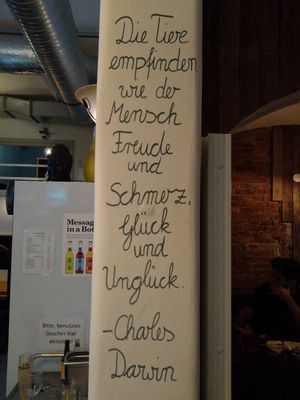 Die Tiere
empfinden
wie der
Mensch
Freude
und
Schmerz,
Glück
und
Unglück.
-Charles
Darwin
Message
in a Bot
Bitte, benutztes
Geschirr hier